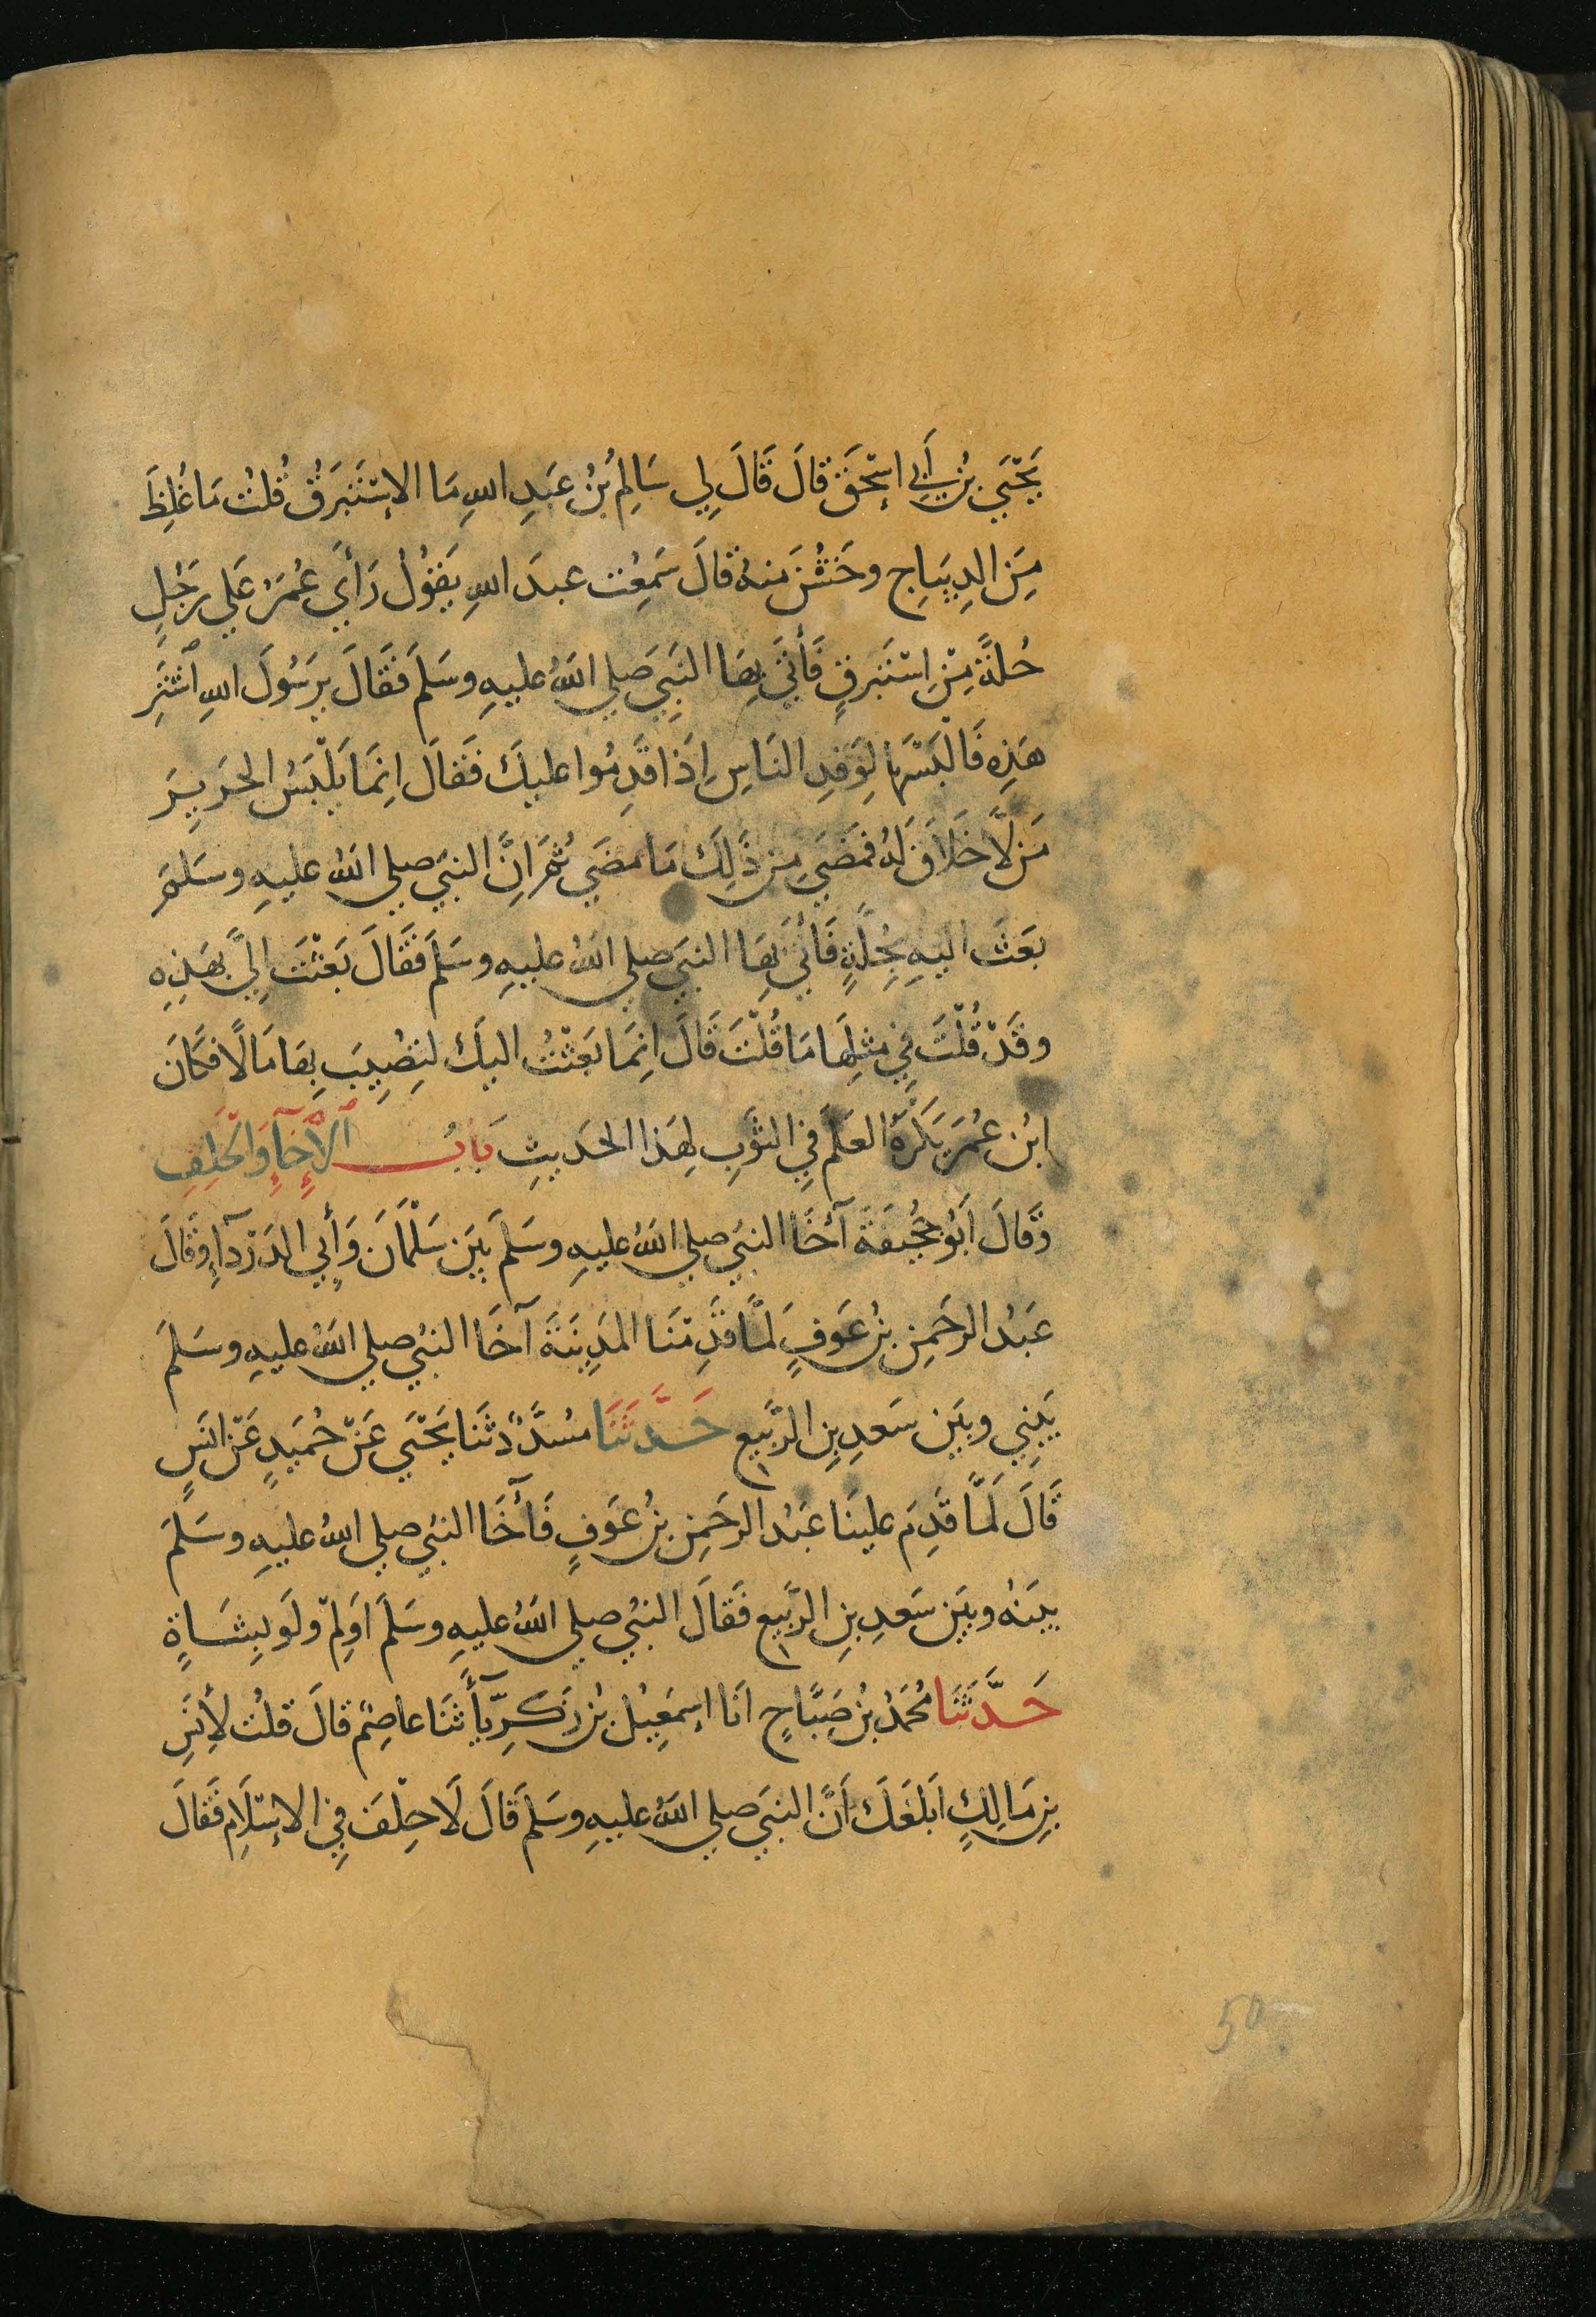 يَحْيَي بْنُ أَبِي اِسْحَقَ قَالَ قَالَ لِي سَالِمُ بْنُ عَبْدِ اللهِ مَا الاِسْتَبْرَقُ قُلْتُ مَا غَلُظَ
مِنَ الدِيبَاجِ وخَشُنَ مِنهُ قَالَ سَمِعْتُ عبدَ اللهِ يَقُوْلُ رَأَي عُمَرُ عَلي رَجُلٍ
حُلَةً مِنْ اِسْتَبْرَقٍ فَأَتَي بِهَا النَبِيَ صَلي اللهُ عليهِ وسَلمَ فَقَالَ يرَسُولَ اللهِ اشْتَرِ
هَذِهِ فَالْبَسْهَا لِوَفدِ النَاسِ اِذَا قَدِمُوا عليكَ فَقَالَ اِنَمَا يَلْبَسُ الحَرِيرَ
مَن لَّا خَلَاقَ لَهُ فمَضَي مِن ذَلِكَ مَا مضَي ثُمَ اِنَّ النبيَ صلي اللهُ عليهِ وسَلمَ
بعَثَ اليهِ بِحُلَّةٍ فَأَتَي بِهَا النبيَ صلي اللهُ عليهِ وسَلمَ فَقَالَ بَعَثْتَ اِلَيَّ بهَذِهِ
وقَدْ قُلْتَ فِي مثلِهَا مَا قُلْتَ قَالَ اِنَمَا بَعَثْتُ اليكَ لتُصِيبَ بِهَا مَالًا فكَانَ
ابْن عُمَرَ يَكْرَهُ العَلَمَ فِي الثَوبِ لِهَذا الحَديثِ بَابُ الْاِخَآءِ وَالحِلفِ
وَقَالَ اَبُو جُحَيفَةَ آخَا النبيُ صلي اللهُ عليهِ وسَلمَ بيَن سَلْمَانَ وَأَبِي الدَرْدَآءِ وقَالَ
عَبْدُ الرحَمِن بنُ عَوفٍ لَمَّا قَدِمْنَا المَدِينَةَ آخَا النبيُ صلي اللهُ عليهِ وسَلمَ
بَيْنِي وبيَن سَعدِ بنِ الرَبيعِ حَدَّثَنَا مُسَدَّدٌ ثنَا يَحْيَي عَنْ حُمَيدٍ عَنْ انَسٍ
قَالَ لَمَّا قَدِمَ علينَا عَبْدُ الرحَمِن بنُ عَوفٍ فَآخَا النبيُ صلي اللهُ عليهِ وسَلمَ
بينَهُ وبيَن سَعدِ بنِ الرَبيعِ فَقَالَ النبيُ صلي اللهُ عليهِ وسَلمَ اَوَلِمْ ولَو بِشَاةٍ
حَدَّثَنَا مُحَمَدُ بْنُ صَبَّاحٍ انَا اِسمَعِيْلُ بْنُ زَكَرِيَّآءَ ثنَا عاصِمٌ قَالَ قلْتُ لأَنَسِ
بنِ مَالِكٍ اَبَلَغَكَ اَنَّ النبيَ صلي اللهُ عليهِ وسَلمَ قَالَ لَا حِلْفَ فِي الاِسْلَامِ فَقَالَ
50